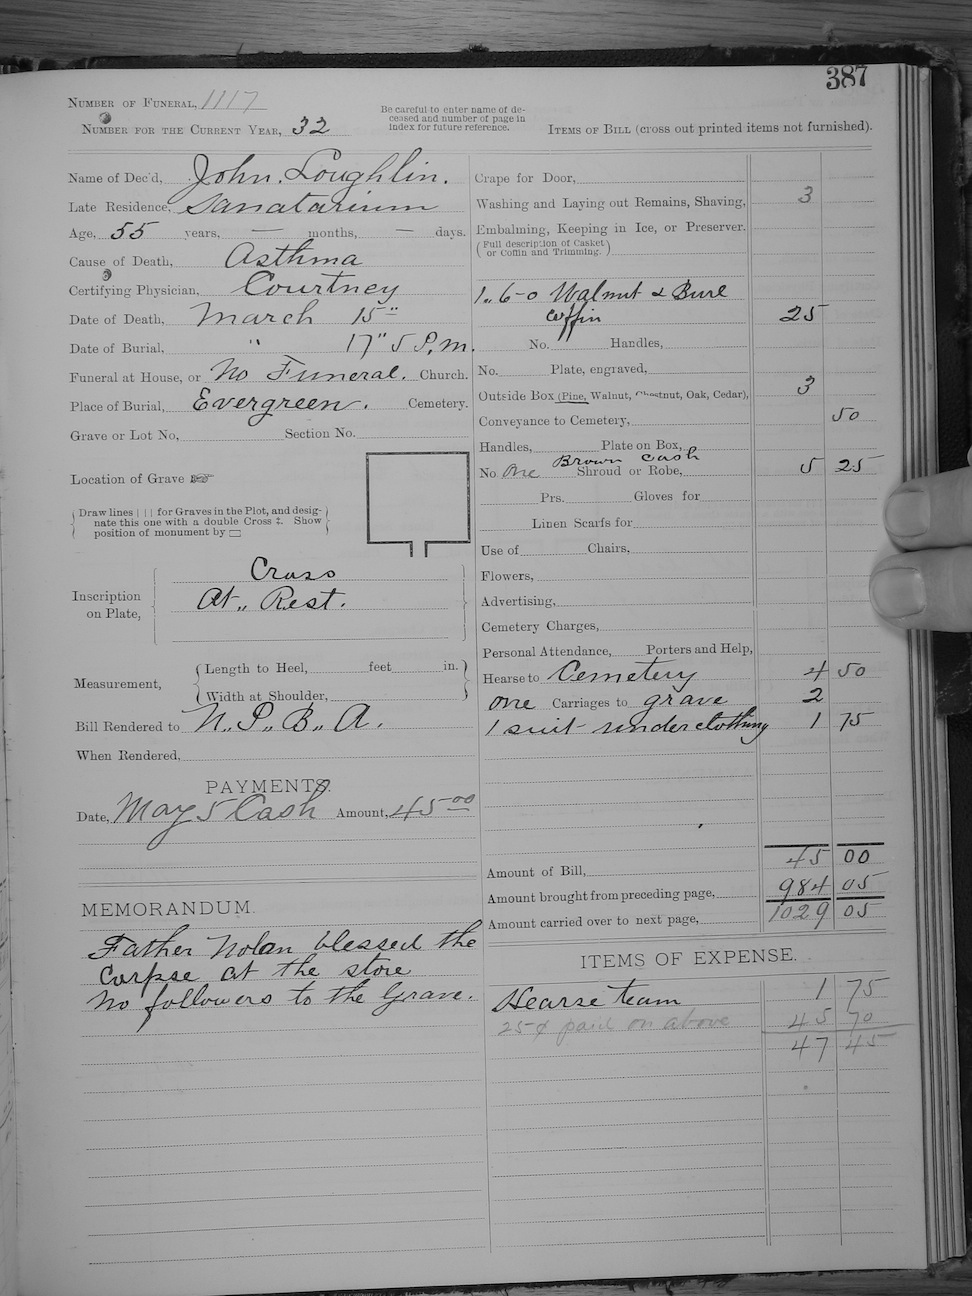 387
NUMBER OF FUNERAL, 1117
NUMBER FOR THE CURRENT YEAR, 32
Be careful to enter name of de-
ceased and number of page in
index for future reference.
ITEMS OF BILL (cross out printed items not furnished).
Name of Dec'd, John. Loughlin.
Late Residence, Sanatarium
Age, 55 years, — months, — days.
Cause of Death, Asthma
Certifying Physician, Courtney
Date of Death, March 15"
Date of Burial, " 17" 5 P.M.
Funeral at House, or No Funeral. Church.
Place of Burial, Evergreen. Cemetery.
Grave or Lot No, Section No.
Location of Grave ☞
Draw lines | | | for Graves in the Plot, and desig-
nate this one with a double Cross ‡. Show
position of monument by ▭
Inscription
on Plate,
Cross
At,, Rest.
Measurement,
Length to Heel, feet in.
Width at Shoulder,
Bill Rendered to N.,P.,B.,A.
When Rendered,
PAYMENTS.
Date, May 5 Cash Amount, 45 00
MEMORANDUM.
Father Nolan blessed the
Corpse at the store
No followers to the Grave.
Crape for Door,
Washing and Laying out Remains, Shaving, 3
Embalming, Keeping in Ice, or Preserver.
(Full description of Casket
or Coffin and Trimming.)
1,, 6-0 Walnut & Burl
coffin 25
No. Handles,
No. Plate, engraved,
Outside Box (Pine, Walnut, Chestnut, Oak, Cedar), 3
Conveyance to Cemetery, 50
Handles, Plate on Box,
Brown Cash
No. One Shroud or Robe, 5 25
Prs. Gloves for
Linen Scarfs for
Use of Chairs,
Flowers,
Advertising,
Cemetery Charges,
Personal Attendance, Porters and Help,
Hearse to Cemetery 4 50
one Carriages to grave 2
1 suit underclothing 1 75
Amount of Bill, 45 00
Amount brought from preceding page, 984 05
Amount carried over to next page, 1029 05
ITEMS OF EXPENSE.
Hearse team 1 75
25¢ paid on above 45 70
47 45